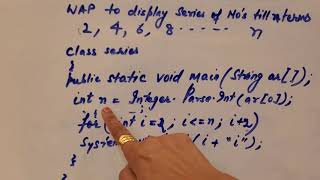 WAP to display series of No's till n terms
2, 4, 6, 8 ------ n
class series
{
public static void main (String ar[]);
int n = Integer.Parse.Int(ar[0]);
for (int i=2; i<=n; i+2)
Syste (i + "i");
}
}